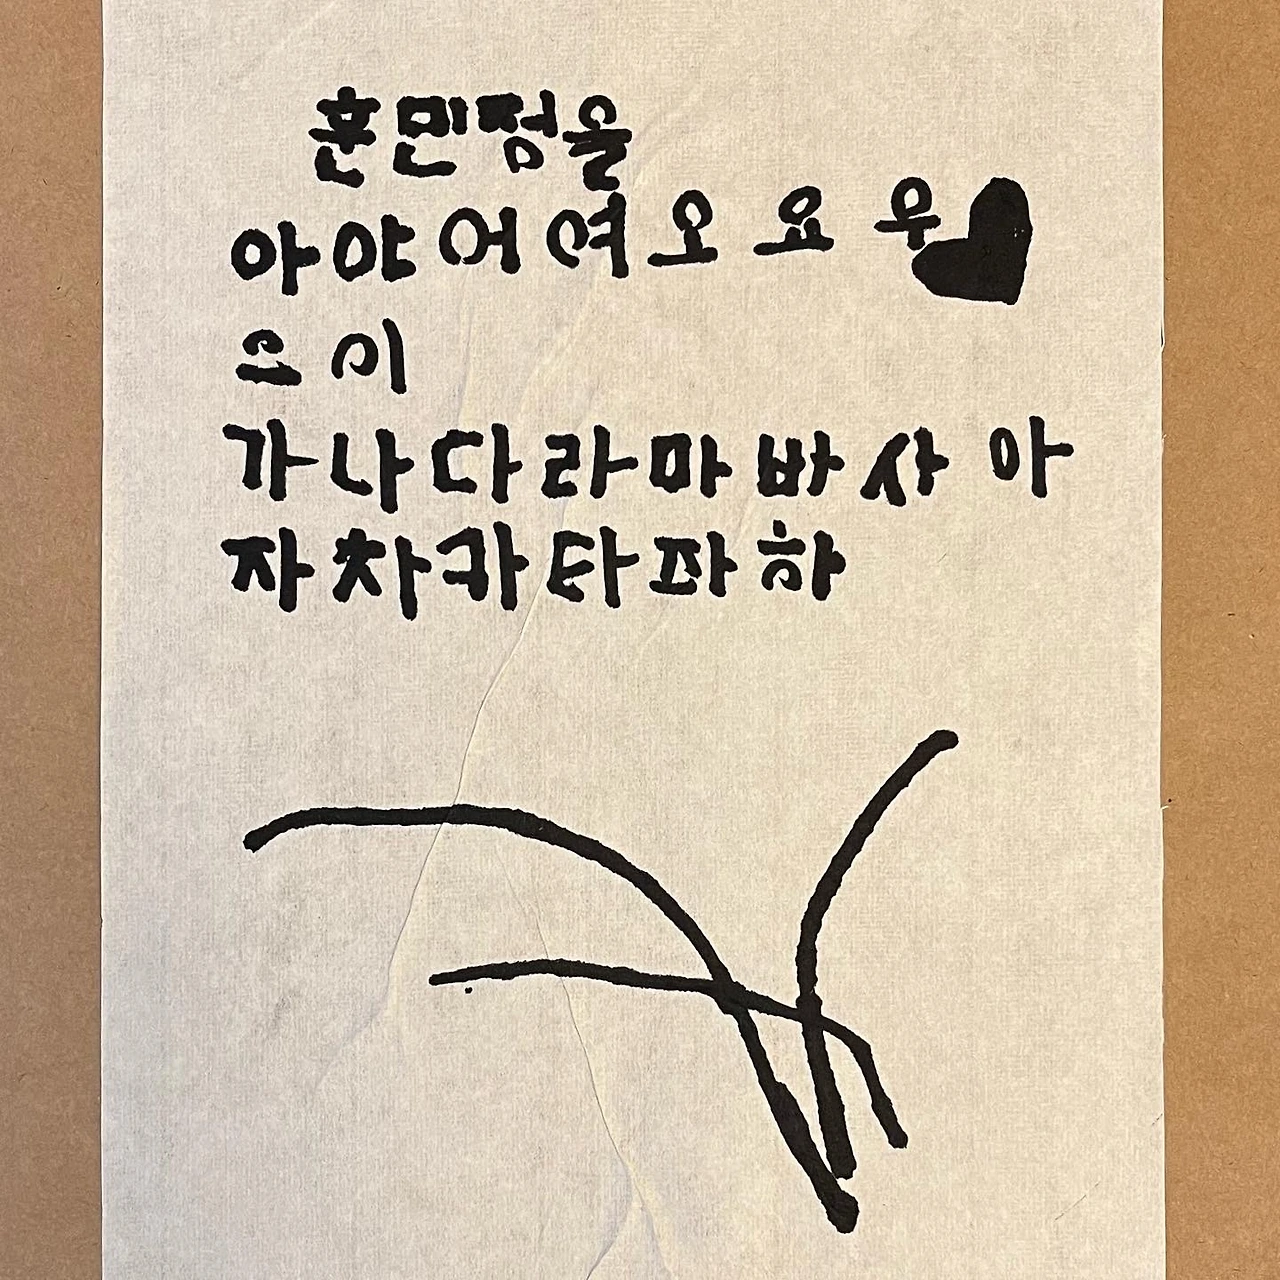 훈민점을
아야어여오요우
으이
가나다라마바사아
자차카타파하